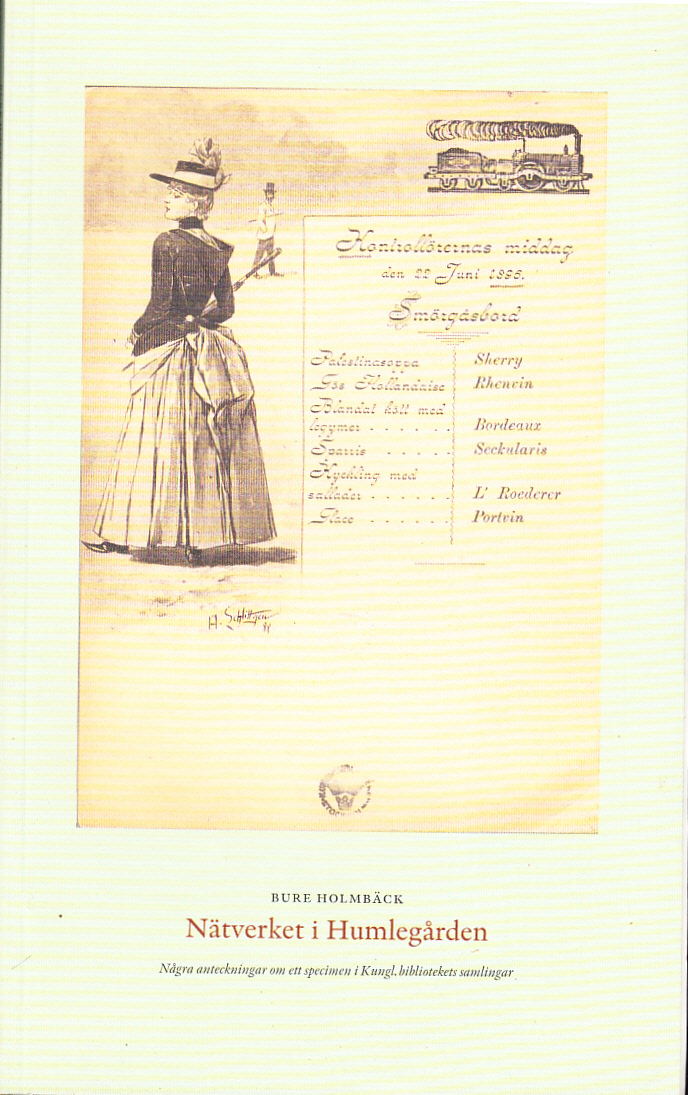 Kontrollörernas middag
den 22 Juni 1896.
Smörgåsbord
Palestinasoppa Sherry
Gös Hollandaise Rhenvin
Blandat kött med
legymer - - - - - - Bordeaux
Sparris - - - - - Seckularis
Kyckling med
sallader - - - - - - L' Roederer
Glace - - - - - - Portvin
A. Schlittgen
BURE HOLMBÄCK
Nätverket i Humlegården
Några anteckningar om ett specimen i Kungl. bibliotekets samlingar